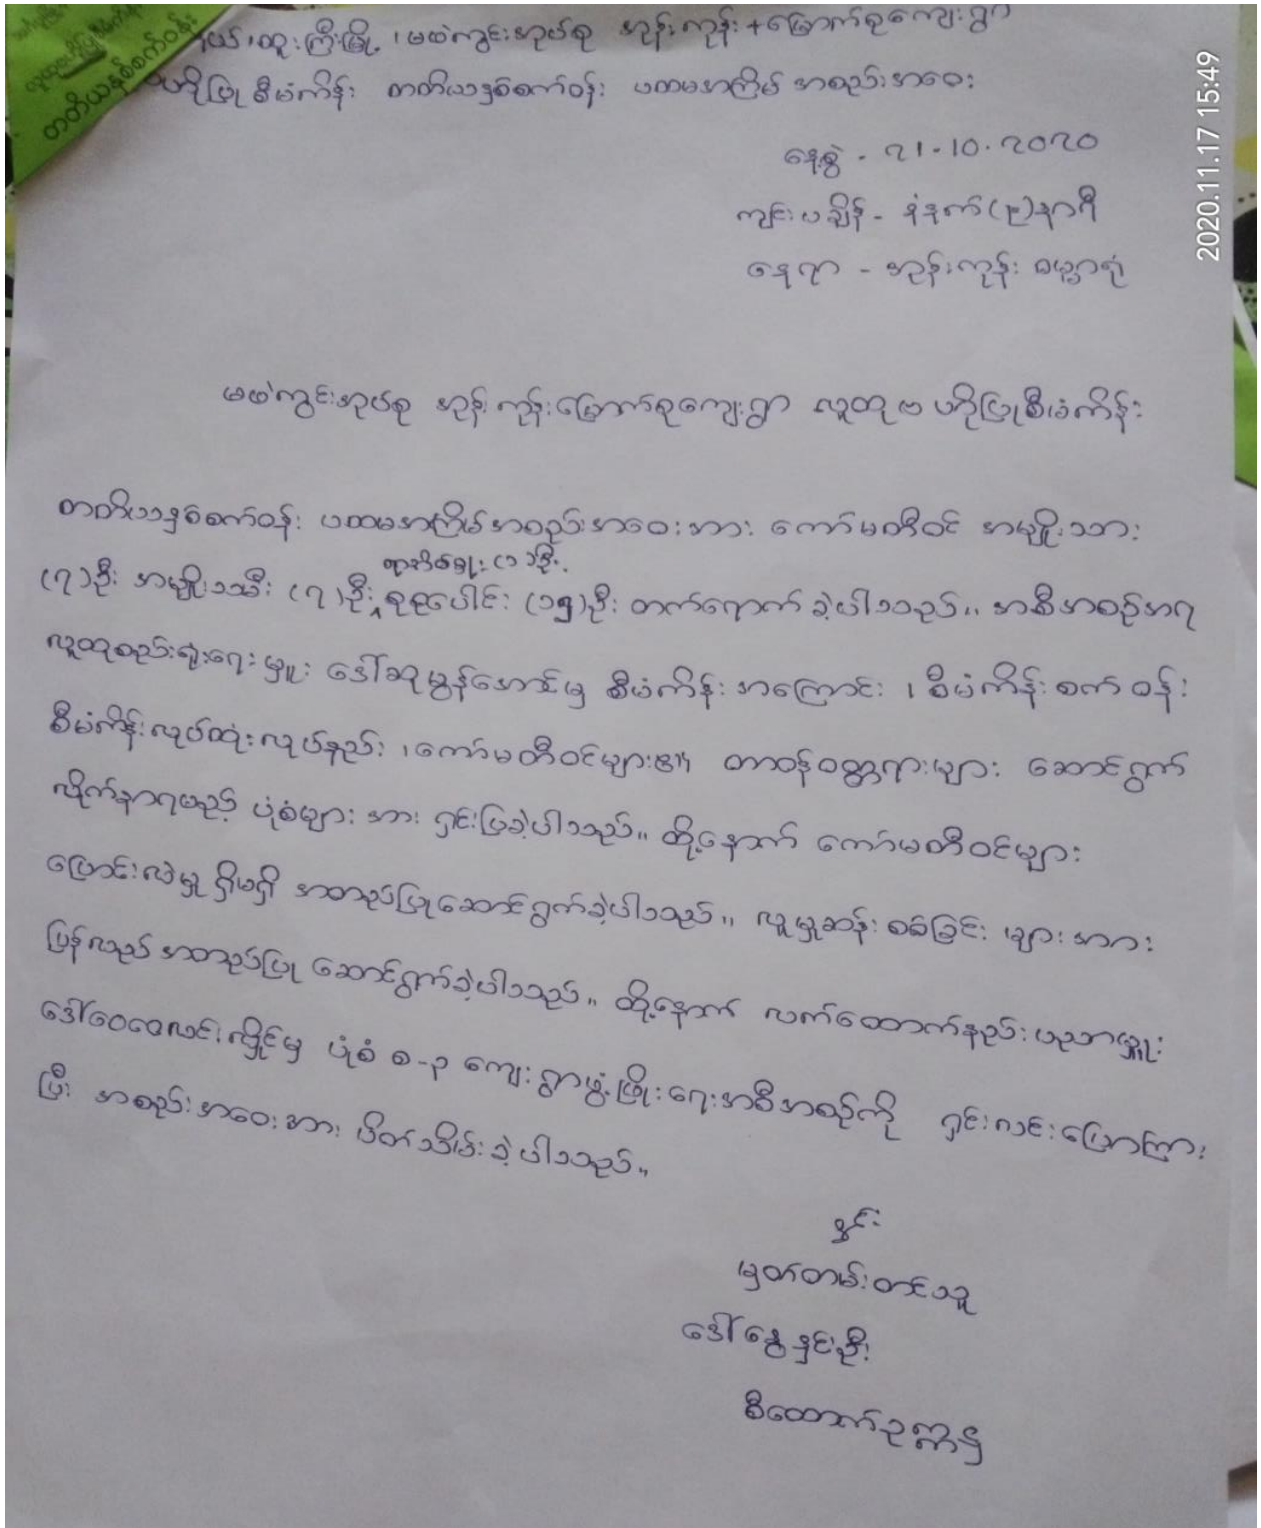 တတိယနှစ်စက်ဝန်း
နယ်၊ ထူးကြီးမြို့၊ မထဲကွင်းအုပ်စု အုန်းကုန်း+မြောက်စုကျေးရွာ
ဗဟိုပြုစီမံကိန်း တတိယနှစ်စက်ဝန်း ပထမအကြိမ် အစည်းအဝေး
နေ့စွဲ - ၂၁-10-၂၀၂၀
ကျင်းပချိန် - နံနက်(၉)နာရီ
နေရာ - အုန်းကုန်း ဓမ္မာရုံ
2020.11.17 15:49
မထဲကွင်းအုပ်စု အုန်းကုန်းမြောက်စုကျေးရွာ လူထုဗဟိုပြုစီမံကိန်း
တတိယနှစ်စက်ဝန်း ပထမအကြိမ်အစည်းအဝေးအား ကော်မတီဝင် အမျိုးသား
ရာအိမ်မှူး (၁)ဦး
(၇)ဦး အမျိုးသမီး (၇)ဦး စုစုပေါင်း (၁၅)ဦး တက်ရောက်ခဲ့ပါသည်။ အစီအစဉ်အရ
လူထုစည်းရုံးရေးမှူး ဒေါ်ဆုမွန်အောင်မှ စီမံကိန်းအကြောင်း၊ စီမံကိန်းစက်ဝန်း
စီမံကိန်းလုပ်ထုံးလုပ်နည်း၊ ကော်မတီဝင်များ၏ တာဝန်ဝတ္တရားများ ဆောင်ရွက်
လိုက်နာရမည့် ပုံစံများအား ရှင်းပြခဲ့ပါသည်။ ထို့နောက် ကော်မတီဝင်များ
ပြောင်းလဲမှု ရှိမရှိ အတည်ပြုဆောင်ရွက်ခဲ့ပါသည်။ လူမှုဆန်းစစ်ခြင်းများအား
ပြန်လည်အတည်ပြု ဆောင်ရွက်ခဲ့ပါသည်။ ထို့နောက် လက်ထောက်နည်းပညာမှူး
ဒေါ်ဝေဝေလင်းလှိုင်မှ ပုံစံ စ-၃ ကျေးရွာဖွံ့ဖြိုးရေးအစီအစဉ်ကို ရှင်းလင်းပြောကြား
ပြီး အစည်းအဝေးအား ပိတ်သိမ်းခဲ့ပါသည်။
မှတ်တမ်းတင်သူ
ဒေါ်နွေနှင်းဦး
စီထောက်ဥက္ကဋ္ဌ